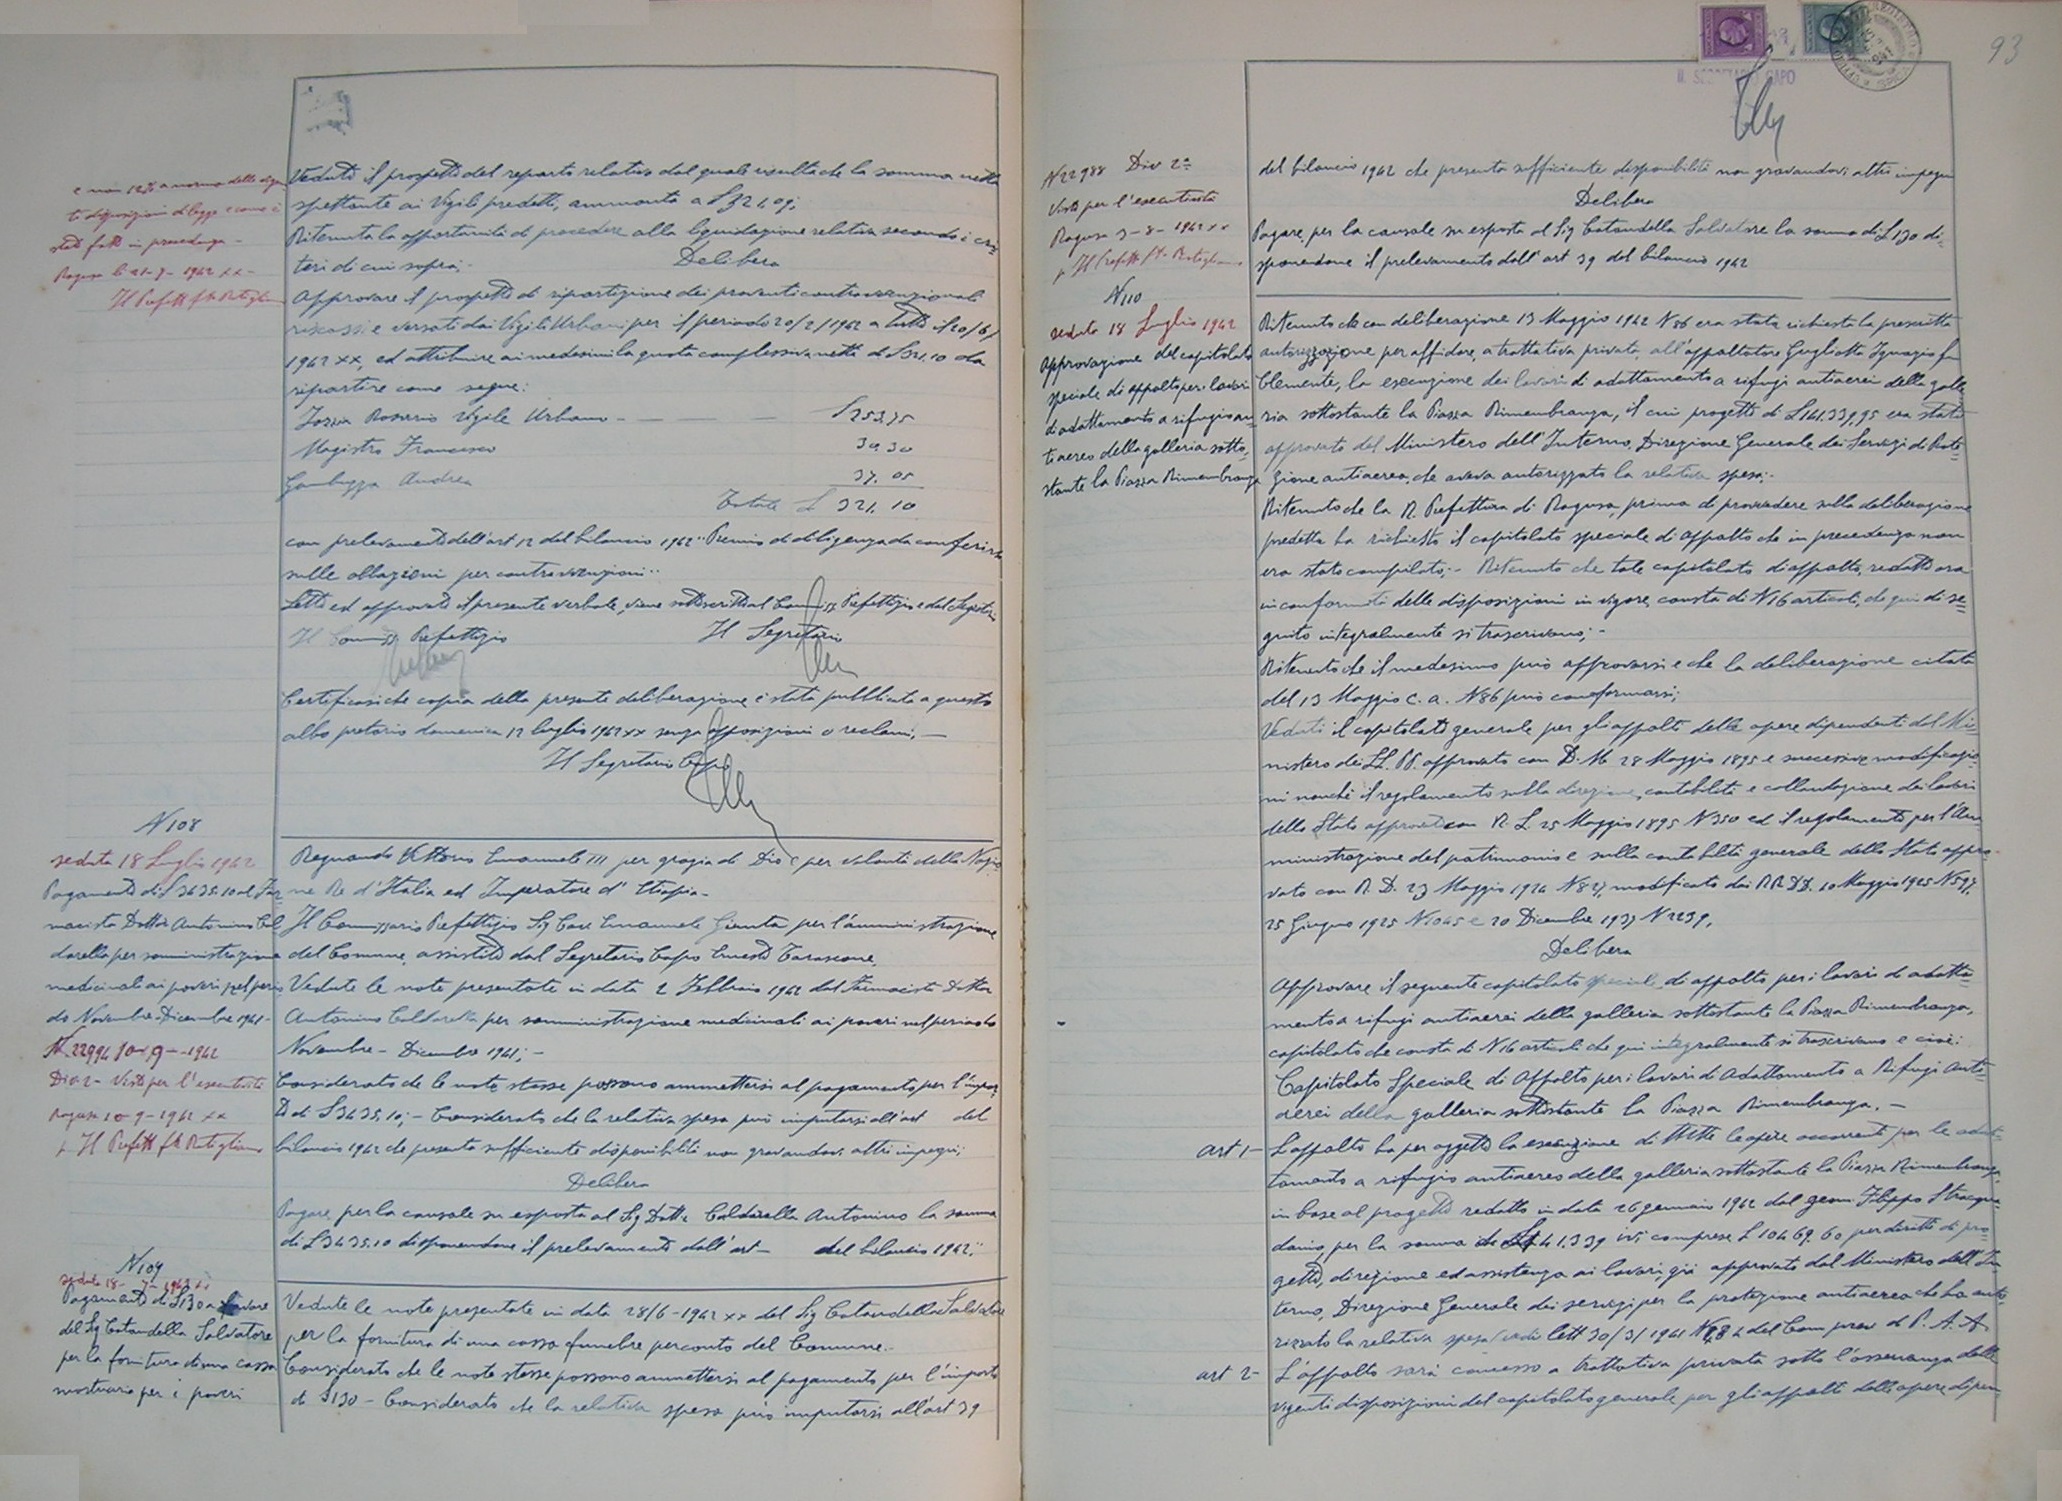 e non 12% a norma delle vigen
ti disposizioni di legge e come è
stato fatto in precedenza -
Ragusa li 21-9-1942 XX -
Il Prefetto f/to
Veduto il prospetto del reparto relativo dal quale risulta che la somma netta
spettante ai Vigili predetti, ammonta a £ 321,09;
Ritenuta la opportunità di procedere alla liquidazione relativa secondo i cri=
teri di cui sopra;
Delibera
Approvare il prospetto di ripartizione dei proventi contravvenzionali
riscossi e versati dai Vigili Urbani per il periodo 20/2/1942 a tutto il 20/6/
1942 XX, ed attribuire ai medesimi la quota complessiva netta di £ 321.10 da
ripartire come segue:
Rosario Vigile Urbano - £ 253,75
Magistro Francesco 30.30
Gambuzza Andrea 37.05
Totale £ 321.10
con prelevamento dell'art 12 del bilancio 1942 "Premio di diligenza da conferirsi
sulle oblazioni per contravvenzioni"
Letto ed approvato il presente verbale, viene sottoscritto dal Commiss. Prefettizio e dal Segretario
Il Commiss. Prefettizio Il Segretario
Certificasi che copia della presente deliberazione è stata pubblicata a questo
albo pretorio domenica 12 luglio 1942 XX senza opposizioni o reclami. -
Il Segretario Capo
N 108
seduta 18 Luglio 1942
Pagamento di £ 3435.10 al Far=
macista Dottor Antonino Cal
darella per somministrazione
medicinali ai poveri nel perio=
do Novembre-Dicembre 1941-
N. 22994 10-9-1942
Div 2- Visto per l'esecutività
Ragusa 10-9-1942 XX
p. Il Prefetto f/to
Regnando Vittorio Emanuele III per grazia di Dio e per volontà della Nazio=
ne Re d'Italia ed Imperatore d'Etiopia -
Il Commissario Prefettizio Sig Cav Emanuele Giunta per l'amministrazione
del Comune, assistito dal Segretario Capo Ernesto Tarascone.
Vedute le note presentate in data 2 Febbraio 1942 dal Farmacista Dottor
Antonino Caldarella per somministrazione medicinali ai poveri nel periodo
Novembre - Dicembre 1941; -
Considerato che le note stesse possono ammettersi al pagamento per l'impor=
to di £ 3435,10; - Considerato che la relativa spesa può imputarsi all'art del
bilancio 1942 che presenta sufficiente disponibilità non gravandovi altri impegni;
Delibera
Pagare, per la causale su esposta al Sig Dott. Caldarella Antonino la somma
di £ 3435.10 disponendone il prelevamento dall'art - del bilancio 1942."
N 109
seduta 18-7-1942 XX
Pagamento di £ 130 a favore
del Sig Cataudella Salvatore
per la fornitura di una cassa
mortuaria per i poveri
Vedute le note presentate in data 28/6-1942 XX del Sig Cataudella Salvatore
per la fornitura di una cassa funebre per conto del Comune.
Considerato che le note stesse possono ammettersi al pagamento per l'importo
di £ 130 - Considerato che la relativa spesa può imputarsi all'art 39
93
IL SEGRETARIO CAPO
N 22988 Div 2ª
Visto per l'esecutività
Ragusa 3-8-1942 XX
p. Il Prefetto f/to
del bilancio 1942 che presenta sufficiente disponibilità non gravandovi altri impegni
Delibera
Pagare, per la causale su esposta al Sig Cataudella Salvatore la somma di £ 130 di=
sponendone il prelevamento dall'art 39 del bilancio 1942
N 110
seduta 18 Luglio 1942
Approvazione del capitolato
speciale di appalto per i lavori
di adattamento a rifugio an=
tiaereo della galleria sotto=
stante la Piazza Rimembranza
Ritenuto che con deliberazione 13 Maggio 1942 N 86 era stata richiesta la prescritta
autorizzazione per affidare, a trattativa privata all'appaltatore Gugliotta Ignazio fu
Clemente, la esecuzione dei lavori di adattamento a rifugi antiaerei della galle
ria sottostante la Piazza Rimembranza, il cui progetto di £ 141.339,95 era stato
approvato dal Ministero dell'Interno, Direzione Generale dei Servizi di Prote
zione antiaerea, che aveva autorizzato la relativa spesa;
Ritenuto che la R. Prefettura di Ragusa, prima di provvedere sulla deliberazione
predetta ha richiesto il capitolato speciale di appalto che in precedenza non
era stato compilato; - Ritenuto che tale capitolato di appalto, redatto ora
in conformità delle disposizioni in vigore, consta di N 16 articoli, che qui di se=
guito integralmente si trascrivono; -
Ritenuto che il medesimo può approvarsi e che la deliberazione citata
del 13 Maggio c. a. N 86 può confermarsi;
Veduti il capitolato generale per gli appalti delle opere dipendenti dal Mi=
nistero dei LL. PP. approvato con D. M. 28 Maggio 1895 e successive modificazio=
ni nonché il regolamento sulla direzione, contabilità e collaudazione dei lavori
dello Stato approvato con R. D. 25 Maggio 1895 N 350 ed il regolamento per l'Am=
ministrazione del patrimonio e sulla contabilità generale dello Stato appro=
vato con R. D. 23 Maggio 1924 N 827, modificato dai RR.DD. 10 Maggio 1925 N 597,
25 Giugno 1925 N 1045 e 20 Dicembre 1937 N 2239,
Delibera
Approvare il seguente capitolato speciale di appalto per i lavori di adatta=
mento a rifugi antiaerei della galleria sottostante la Piazza Rimembranza,
capitolato che consta di N 16 articoli che qui integralmente si trascrivono e cioè:
Capitolato Speciale di Appalto per i lavori di Adattamento a Rifugi Anti=
aerei della galleria sottostante la Piazza Rimembranza. -
art 1- L'appalto ha per oggetto la esecuzione di tutte le opere occorrenti per lo adat=
tamento a rifugio antiaereo della galleria sottostante la Piazza Rimembranza
in base al progetto redatto in data 26 gennaio 1942 dal geom. Filippo Stracqua
danio, per la somma di 141.339 ivi comprese £ 10469.60 per diritti di pro=
getto, direzione ed assistenza ai lavori, già approvato dal Ministero dell'In
terno, Direzione Generale dei servizi per la protezione antiaerea che ha auto=
rizzato la relativa spesa (vedi lett 30/3/1941 del Com prov di P. A. A.
art 2- L'appalto sarà concesso a trattativa privata sotto l'osservanza delle
vigenti disposizioni del capitolato generale per gli appalti delle opere dipen